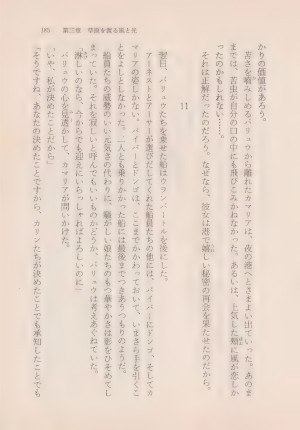 165　第三章　草原を渡る風と光
かりの価値があろう。
苦さを噛みしめる。リュウから離れたカマリアは、夜の港へとさまよい出ていった。あのま
までは、苦虫が自分の口の中にも飛びこみかねなかった。あるいは、上気した頬に風が恋しか
ったのかもしれない。
それは正解だったのだろう。なぜなら、彼女は港で嬉しい秘密の再会を果たせたのだから。
11
翌日、バリュウたちを乗せた船はウランバートルを後にした。
アーネストとアーサーが選びだしてくれた船員たちの他には、パイパーにドンゴ、そしてカ
マリアの姿しかない。パイパーとドンゴは、ここまでかかわっておいて、いまさら手を引くこ
とをよしとしなかった。二人とも乗りかかった船には最後までつきあうつもりのようだ。
船員たちの威勢のいい元気さの代わりに、騒がしい娘たちのもつ華やかさは影をひそめてし
まっていた。それを寂しいと呼んでもいいものかどうか、バリュウは考えあぐねていた。
「淋しいのなら、今からでも迎えにいらっしゃればよろしいのに」
バリュウの心を見透かして、カマリアが問いかけた。
「いや、私が決めたことだから」
「そうですね、あなたの決めたことですから、カリンたちが決めたことでも承知したことでも